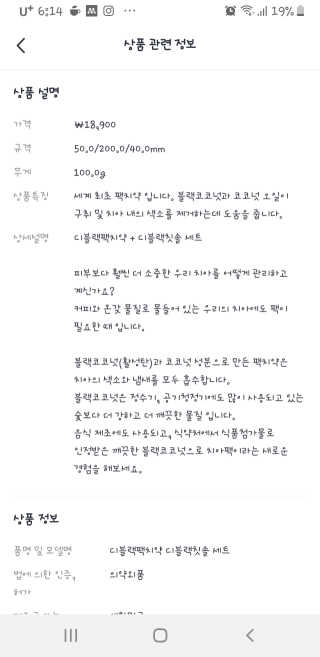 U+ 6:14 ... 19%
상품 관련 정보
상품 설명
가격 ₩18,900
규격 50.0/200.0/40.0mm
무게 100.0g
상품특징 세계 최초 팩치약 입니다. 블랙코코넛과 코코넛 오일이
구취 및 치아 내의 색소를 제거하는데 도움을 줍니다.
상세설명 디블랙팩치약 + 디블랙칫솔 세트
피부보다 훨씬 더 소중한 우리 치아를 어떻게 관리하고
계신가요?
커피와 온갖 물질로 물들어 있는 우리의 치아에도 팩이
필요한 때 입니다.
블랙코코넛(활성탄)과 코코넛 성분으로 만든 팩치약은
치아의 색소와 냄새를 모두 흡수합니다.
블랙코코넛은 정수기, 공기청정기에도 많이 사용되고 있는
숯보다 더 강하고 더 깨끗한 물질 입니다.
음식 제조에도 사용되고, 식약처에서 식품첨가물로
인정받은 깨끗한 블랙코코넛으로 치아팩이라는 새로운
경험을 해보세요.
상품 정보
품명 및 모델명 디블랙팩치약 디블랙칫솔 세트
법에 의한 인증, 의약외품
허가